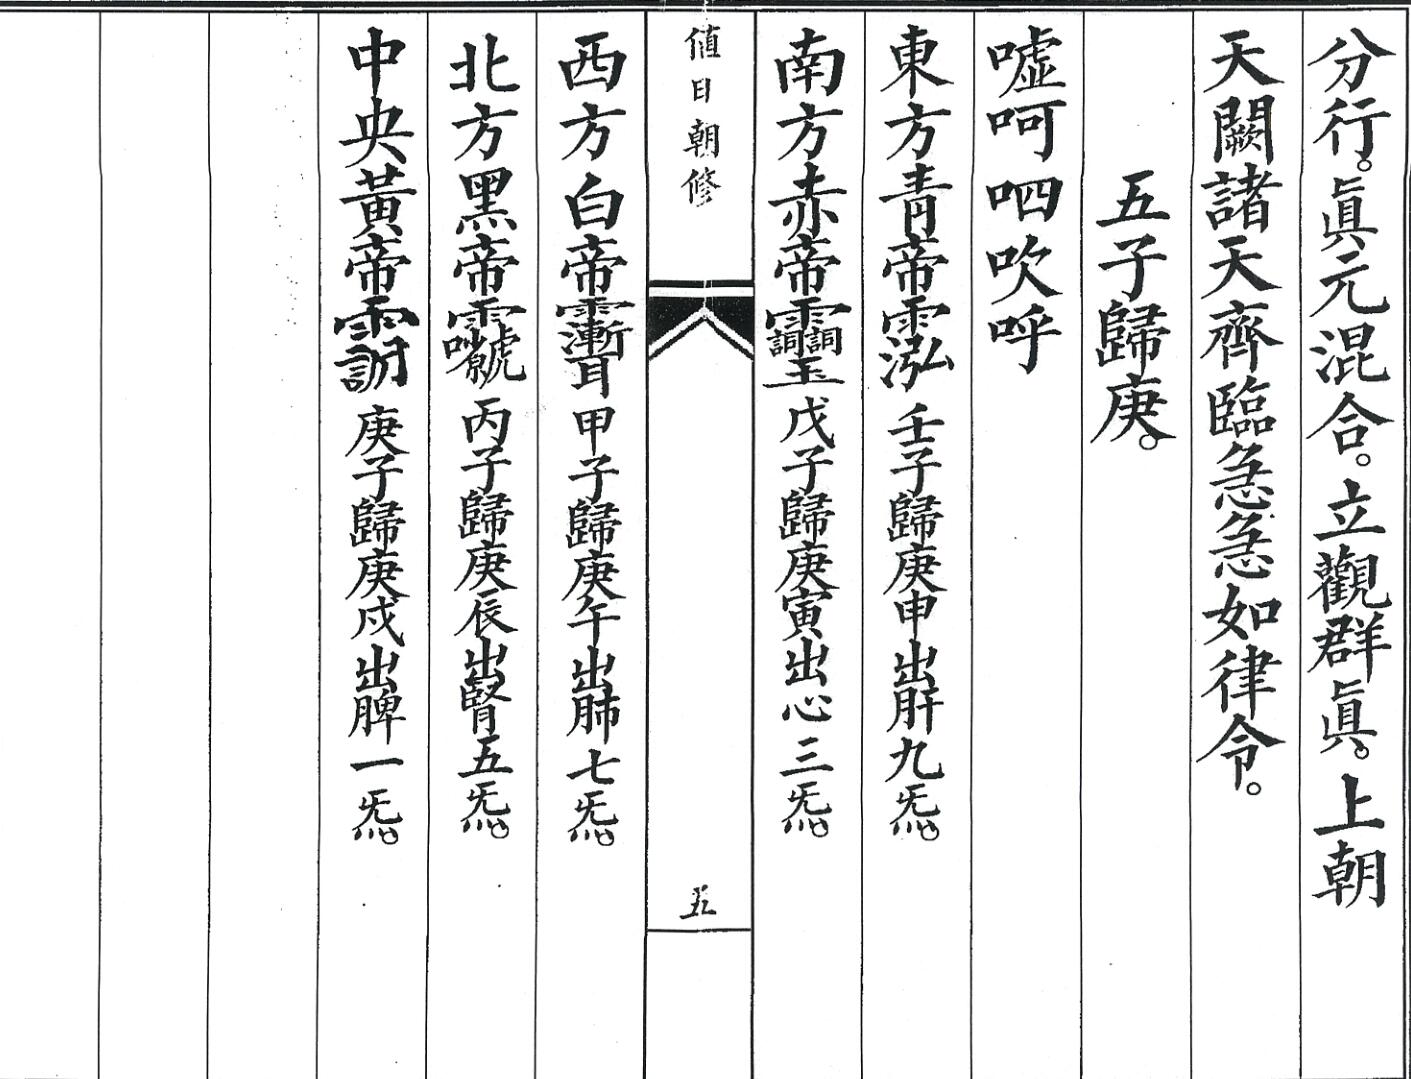 分行。眞元混合。立觀群眞。上朝
天闕諸天齊臨急急如律令。
五子歸庚。
噓呵呬吹呼
東方青帝䨎壬子歸庚申出肝九炁。
南方赤帝戊子歸庚寅出心三炁。
値日朝修
五
西方白帝甲子歸庚午出肺七炁。
北方黑帝丙子歸庚辰出腎五炁。
中央黃帝庚子歸庚戍出脾一炁。